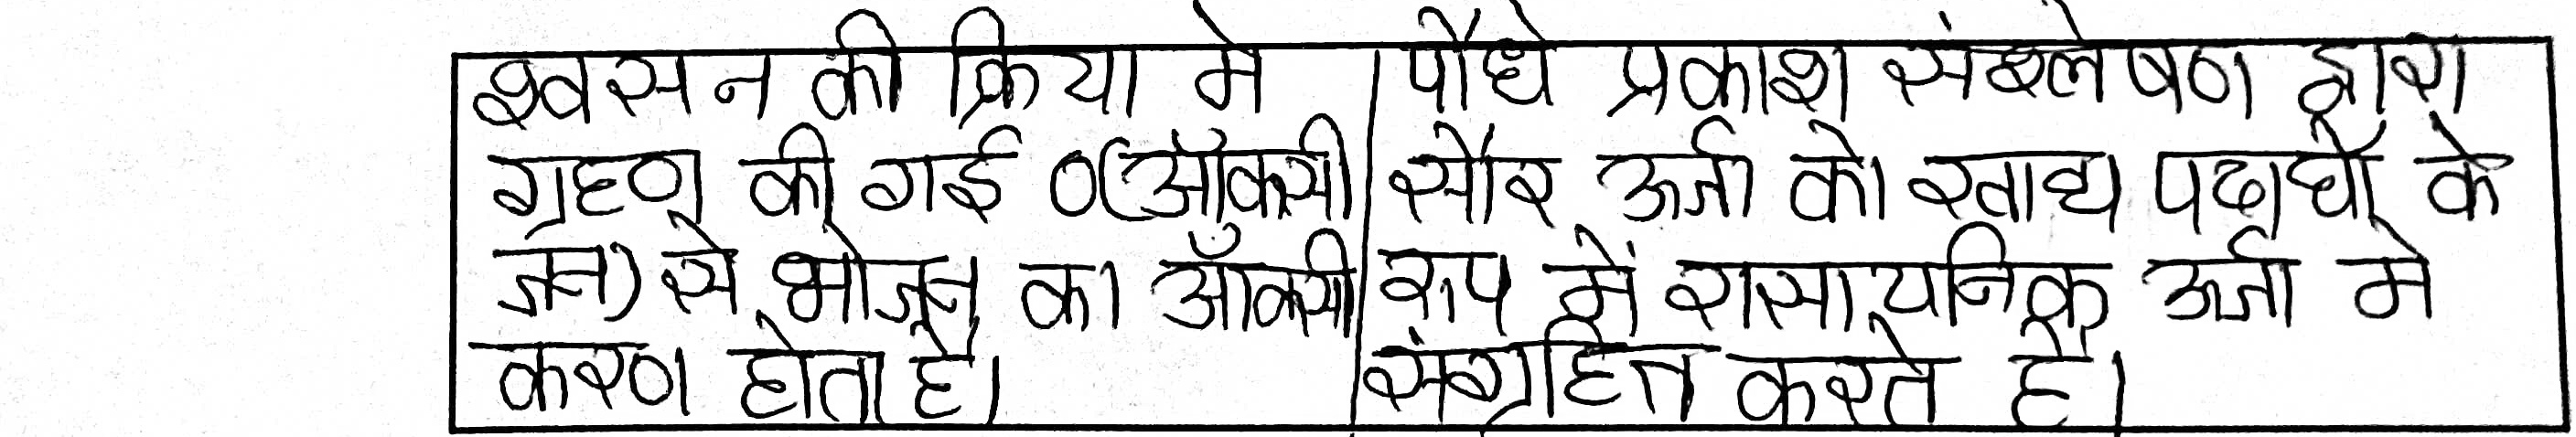 श्वसन की क्रिया मे
ग्रहण की गई O(ऑक्सी
जन) से भोजन का ऑक्सी
करण होता है।
पौधे प्रकाश संश्लेषण द्वारा
सौर ऊर्जा को खाद्य पदार्थो के
रूप में रासायनिक ऊर्जा मे
संग्रहित करते है।